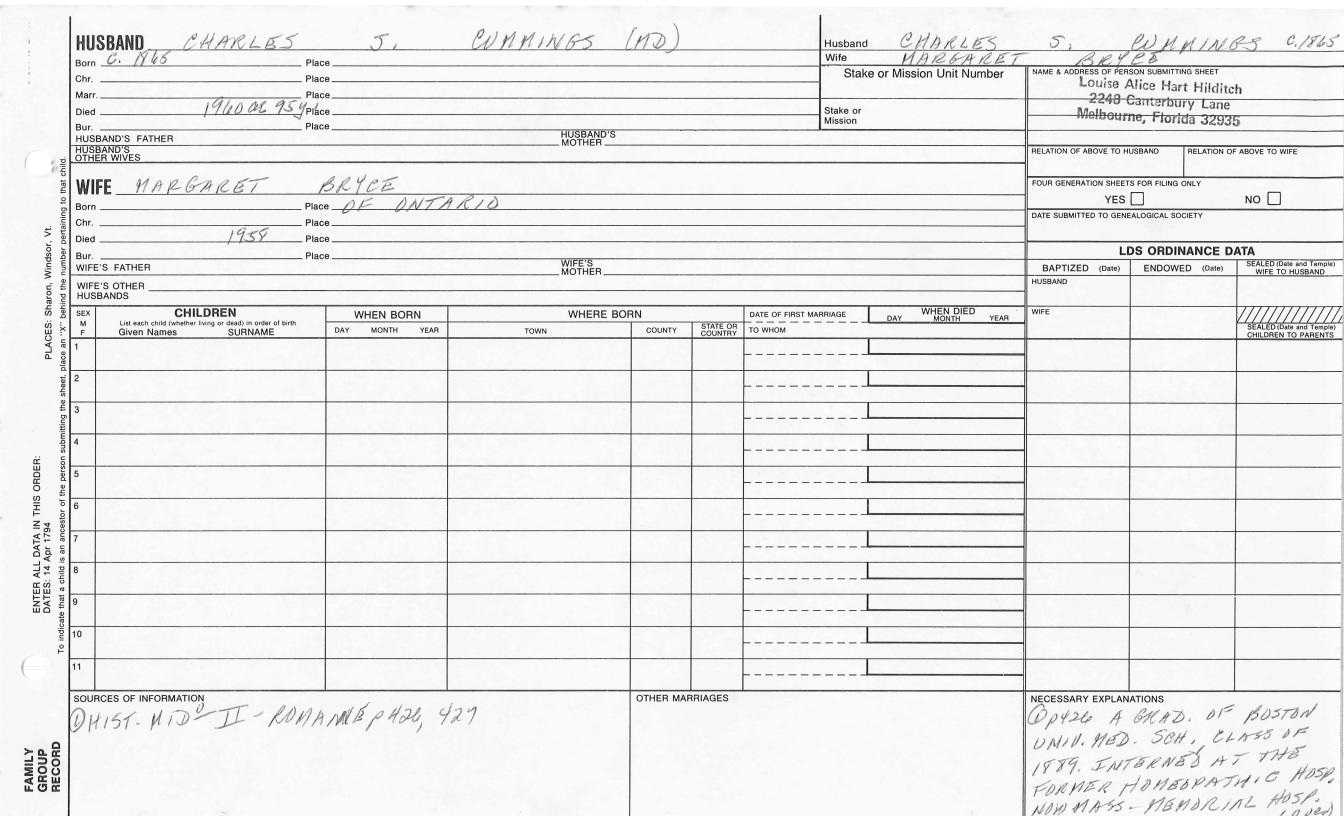 HUSBAND CHARLES S. CUMMINGS (MD)
Born C. 1865 Place
Chr. Place
Marr. Place
Died 1960 ae 95y Place
Bur. Place
HUSBAND'S FATHER HUSBAND'S MOTHER
HUSBAND'S OTHER WIVES
Husband CHARLES S. CUMMINGS C.1865
Wife MARGARET BRYCE
Stake or Mission Unit Number
Stake or Mission
NAME & ADDRESS OF PERSON SUBMITTING SHEET
Louise Alice Hart Hilditch
2248 Canterbury Lane
Melbourne, Florida 32935
RELATION OF ABOVE TO HUSBAND RELATION OF ABOVE TO WIFE
FOUR GENERATION SHEETS FOR FILING ONLY
YES NO
DATE SUBMITTED TO GENEALOGICAL SOCIETY
WIFE MARGARET BRYCE
Born Place OF ONTARIO
Chr. Place
Died 1958 Place
Bur. Place
WIFE'S FATHER WIFE'S MOTHER
WIFE'S OTHER HUSBANDS
LDS ORDINANCE DATA
BAPTIZED (Date) ENDOWED (Date) SEALED (Date and Temple) WIFE TO HUSBAND
HUSBAND
WIFE
SEALED (Date and Temple) CHILDREN TO PARENTS
SEX M F
CHILDREN
List each child (whether living or dead) in order of birth
Given Names SURNAME
WHEN BORN
DAY MONTH YEAR
WHERE BORN
TOWN COUNTY STATE OR COUNTRY
DATE OF FIRST MARRIAGE
TO WHOM
WHEN DIED
DAY MONTH YEAR
1
2
3
4
5
6
7
8
9
10
11
SOURCES OF INFORMATION
① HIST. MIDD II - ROMAINE p 426, 427
OTHER MARRIAGES
NECESSARY EXPLANATIONS
① p426 A GRAD. OF BOSTON
UNIV. MED. SCH, CLASS OF
1889. INTERNED AT THE
FORMER HOMEOPATHIC HOSP.
NOW MASS-MEMORIAL HOSP.
(over)
PLACES: Sharon, Windsor, Vt.
ENTER ALL DATA IN THIS ORDER:
DATES: 14 Apr 1794
To indicate that a child is an ancestor of the person submitting the sheet, place an "X" behind the number pertaining to that child.
FAMILY
GROUP
RECORD